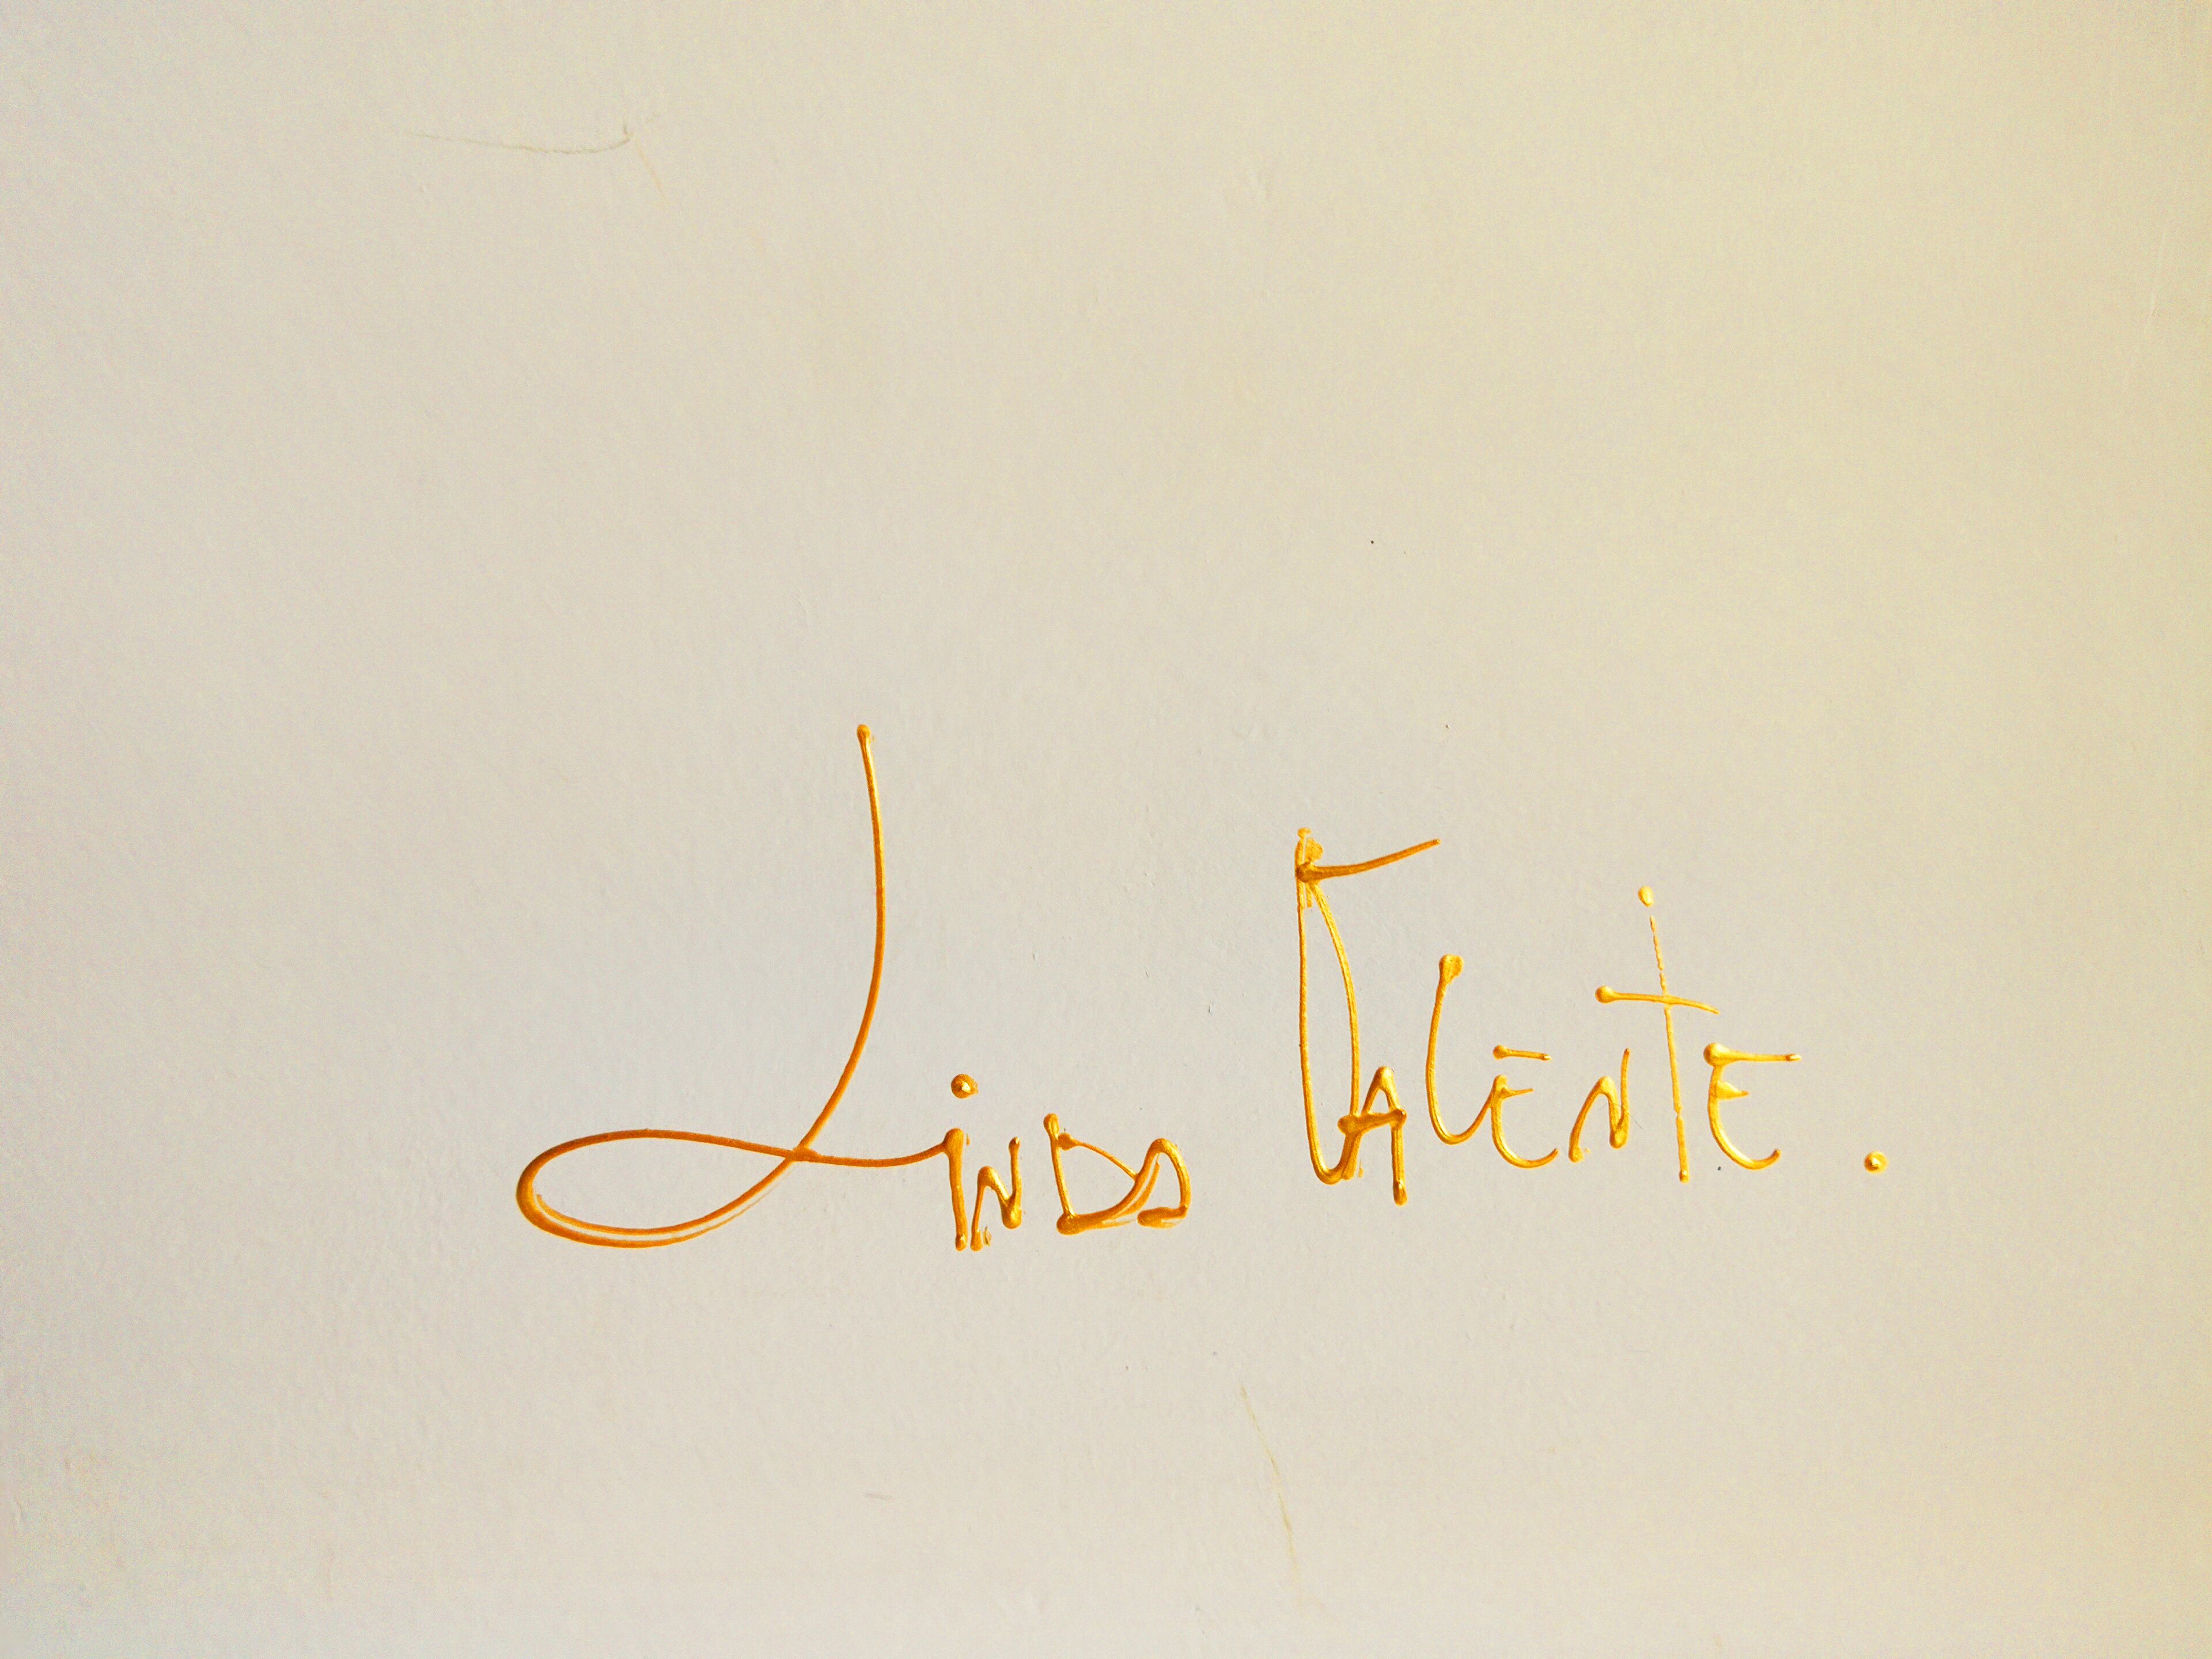 Linda Valente.